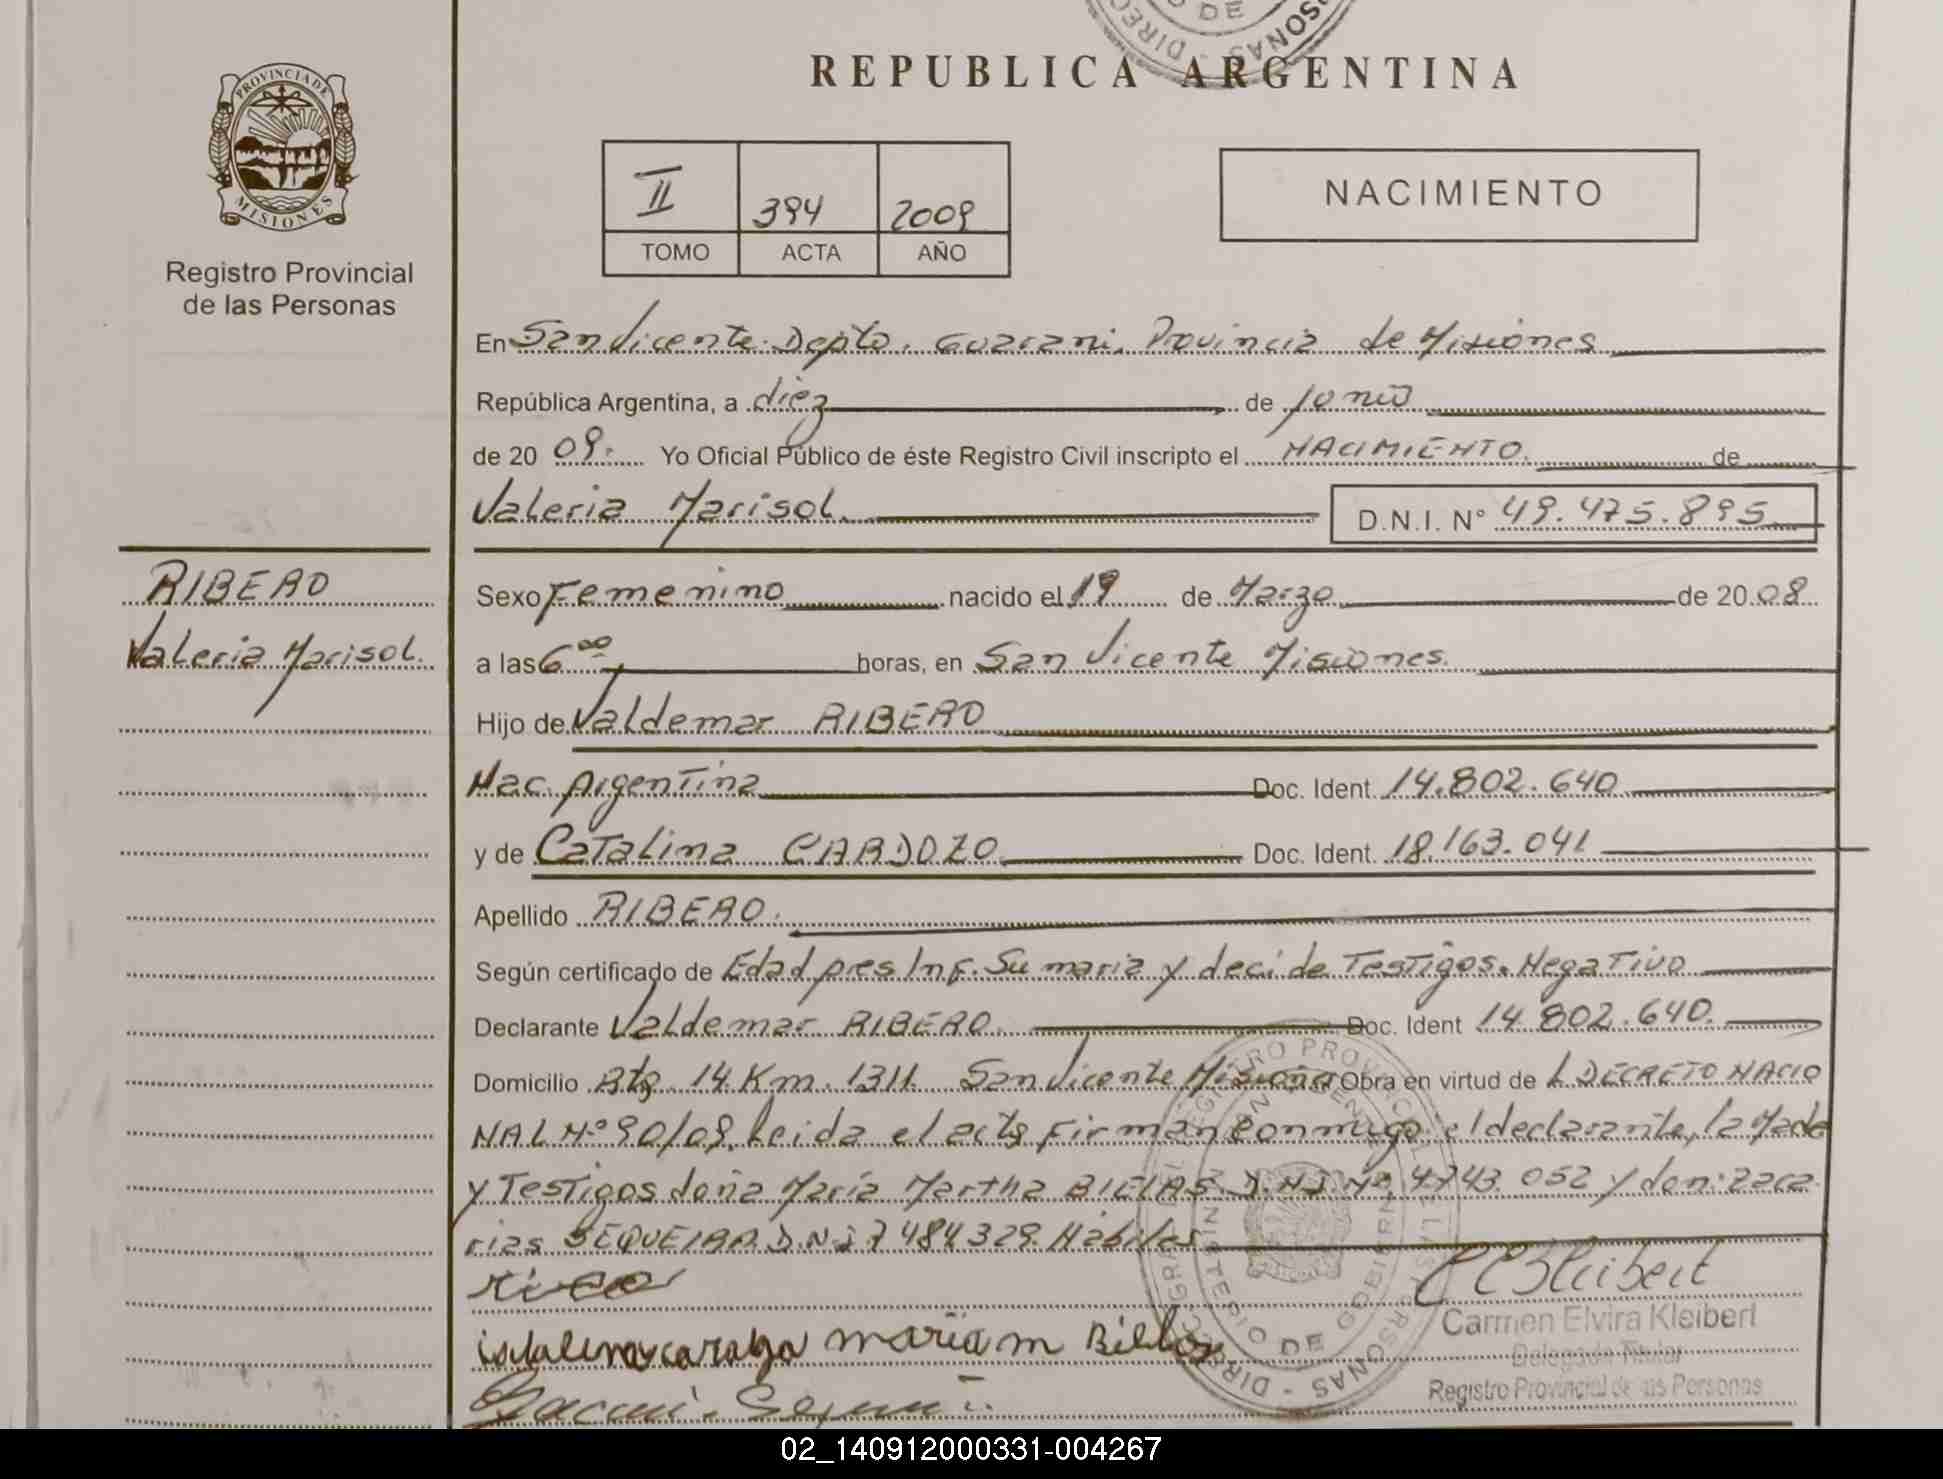 PROVINCIA DE
MISIONES
Registro Provincial
de las Personas
REPUBLICA ARGENTINA
II 394 2009
TOMO ACTA AÑO
NACIMIENTO
En San Vicente Depto. Guarani. Provincia de Misiones
República Argentina, a diez de Junio
de 20 09. Yo Oficial Público de éste Registro Civil inscripto el NACIMIENTO. de
Valeria Marisol. D.N.I. N° 49.475.895
RIBERO
Valeria Marisol.
Sexo Femenino nacido el 19 de Marzo de 20 08
a las 6 00 horas, en San Vicente Misiones.
Hijo de Valdemar RIBERO
Nac. Argentina Doc. Ident. 14.802.640
y de Catalina CARDOZO Doc. Ident. 18.163.041
Apellido RIBERO.
Según certificado de Edad pres Inf. Sumaria y deci de Testigos. Negativo
Declarante Valdemar RIBERO. Doc. Ident 14.802.640.
Domicilio Rta 14 Km. 1311. San Vicente Misiones Obra en virtud de L DECRETO NACIO
NAL N° 90/09. Leida el acta firman conmigo el declarante, la Made
y Testigos doña María Martha D.N.I. N° 4743.052 y don: Zaca
rias SEQUEIRA D.N.I 7484329. Hábiles
maria m
Carmen Elvira Kleibert
Delegada Titular
Registro Provincial de las Personas
02_140912000331-004267